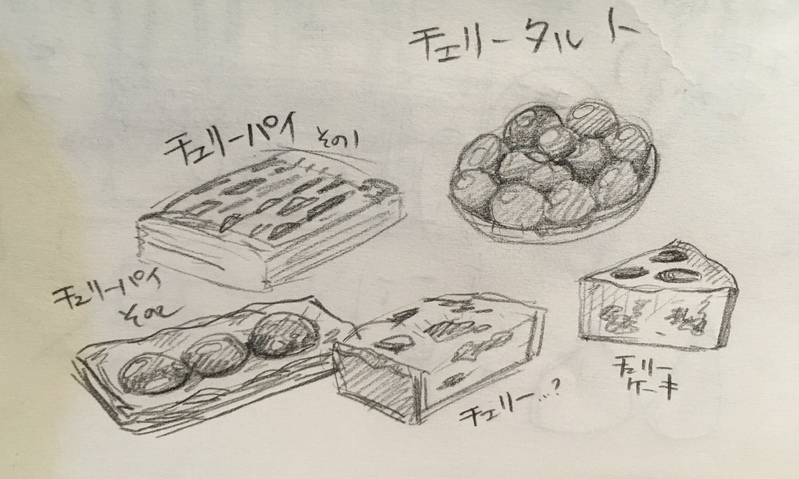 チェリータルト
チェリーパイ その1
チェリーパイ
その2
チェリー…?
チェリー
ケーキ